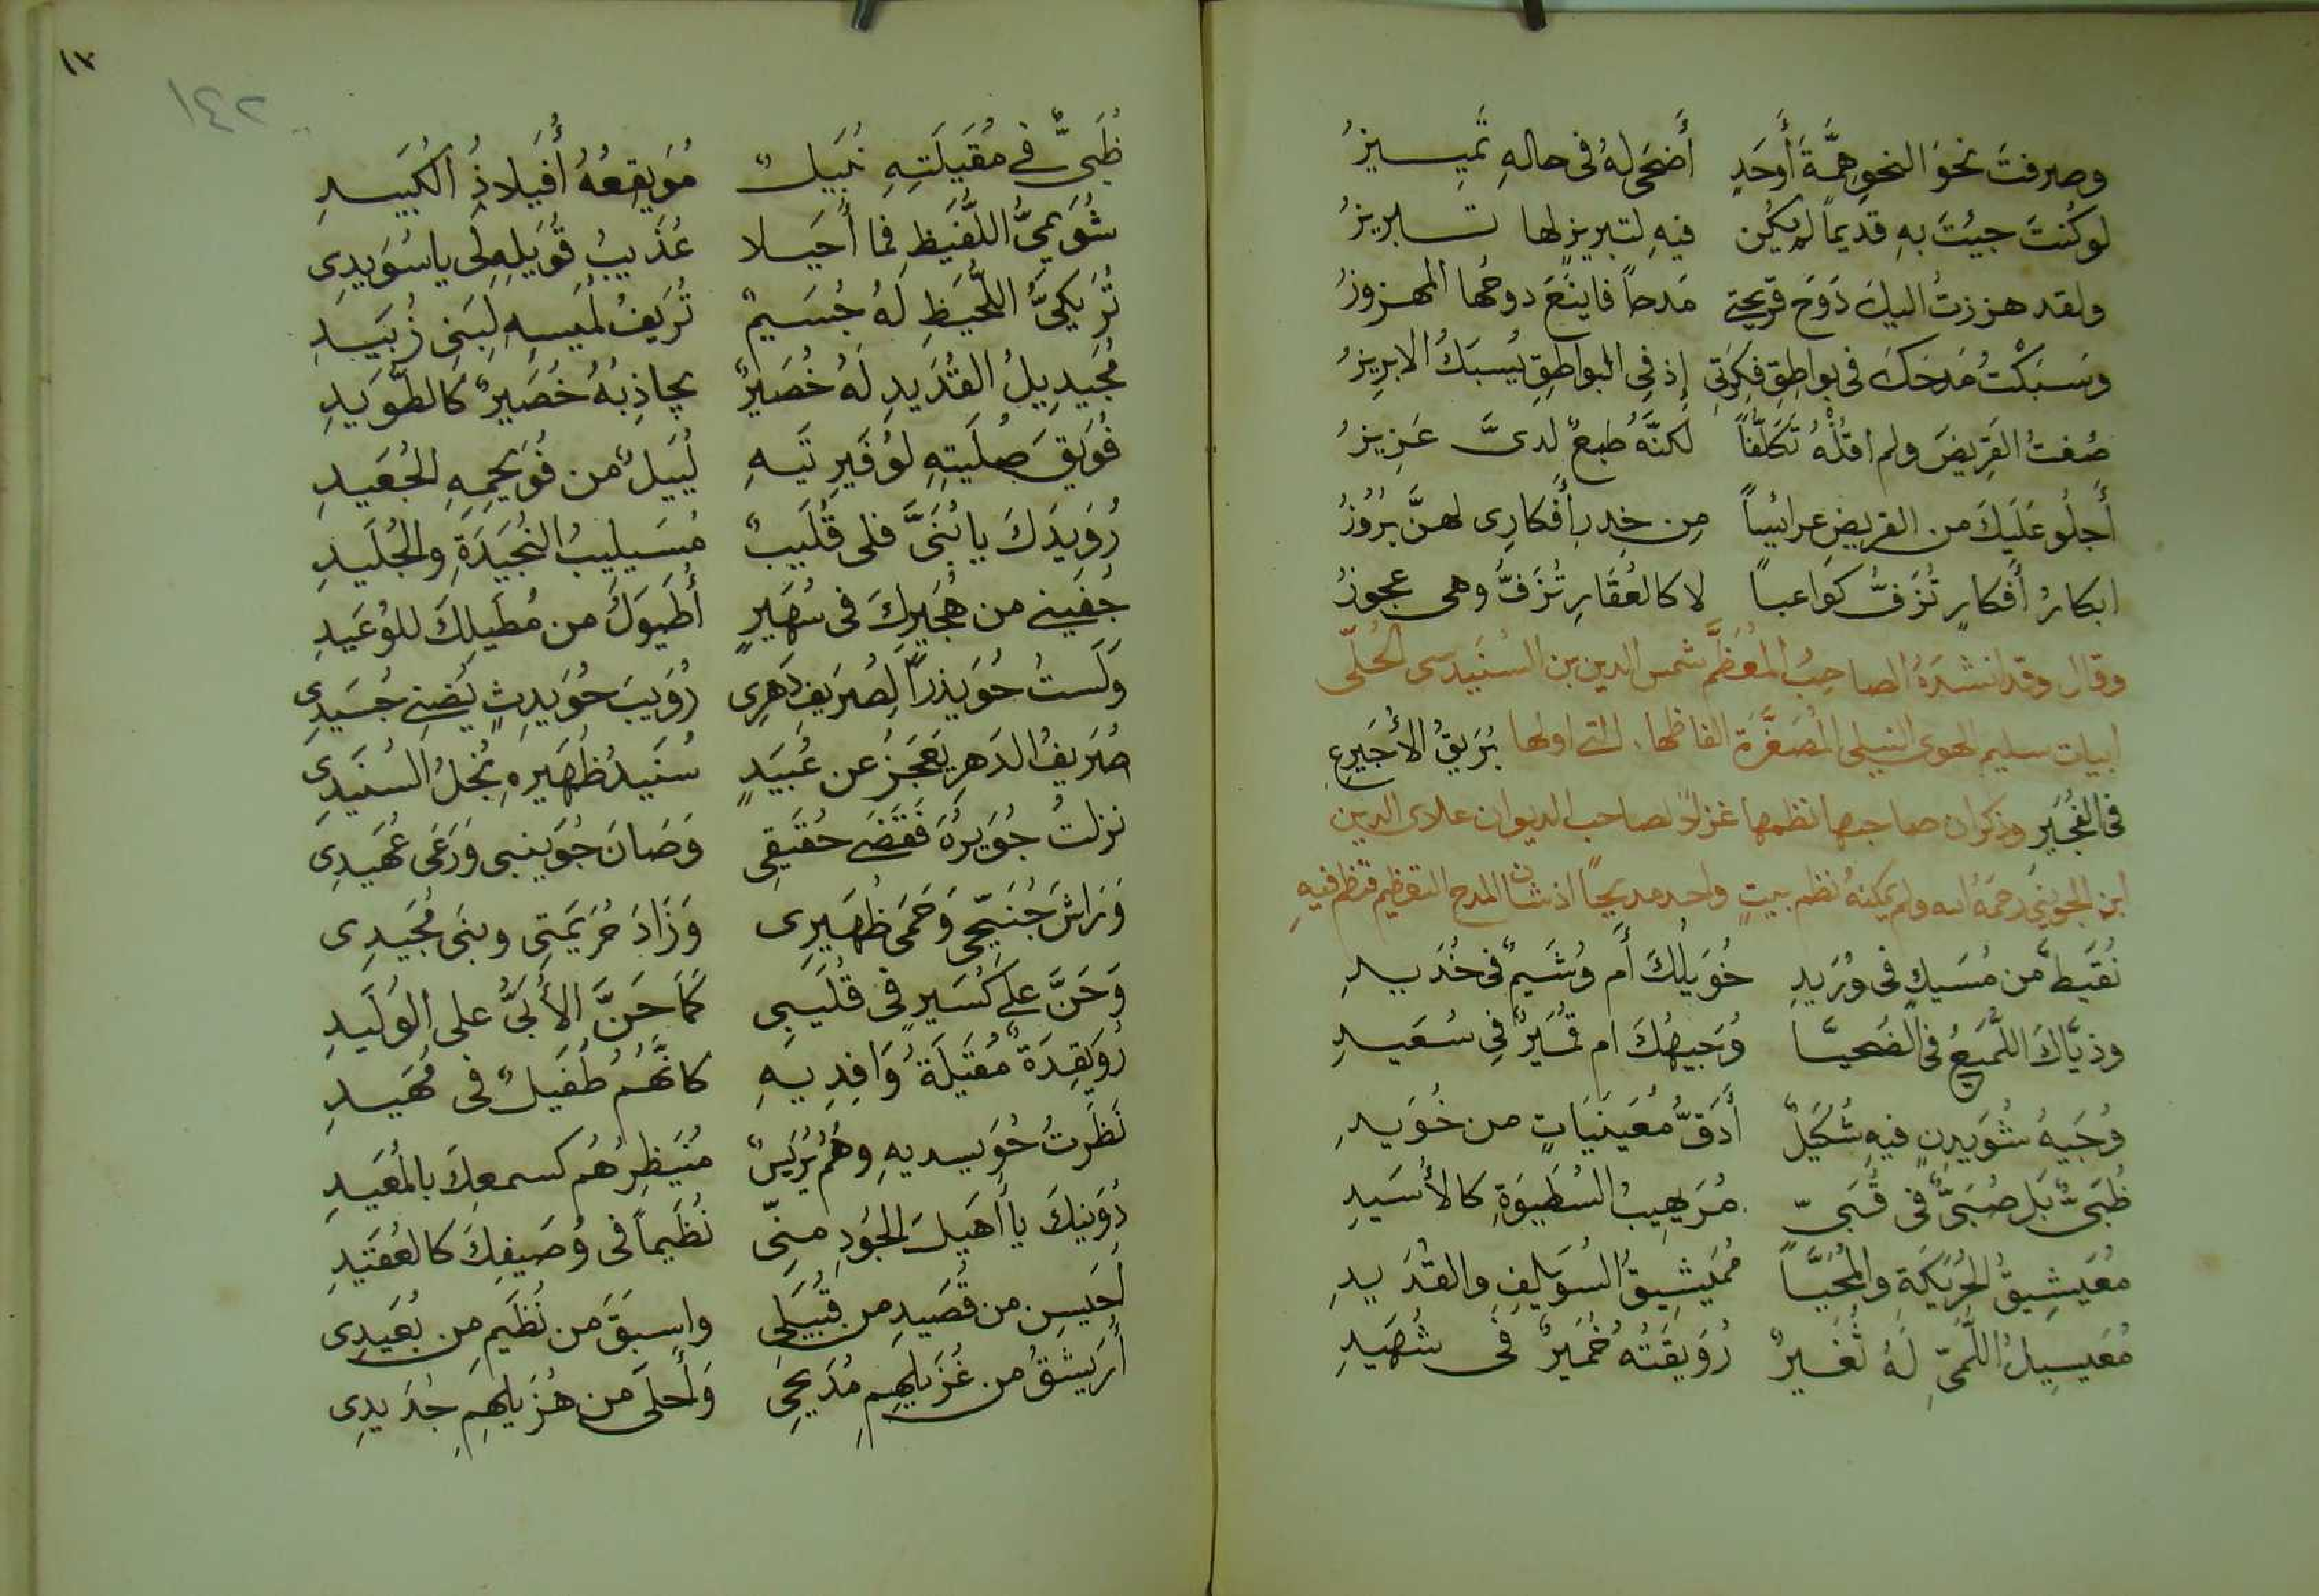 وصرفتَ نحوَ النحوِ هِمَّةَ أَوحَدٍ أَضحَى لهُ فى حالهِ تَمييزُ
لو كُنتَ جيئتَ بهِ قديماً لم يكن فيهِ لتبريزٍ لها تبريزُ
ولقد هززتُ اليكَ دَوحَ قريحتى مَدحاً فاينَعَ دوحُها المهزوزُ
وسَبَكْتُ مَدحَكَ فى بواطِقِ فِكرَتِى إذ فى البواطِقِ يُسبَكُ الابريزُ
صُغتُ القَرِيضَ ولم اقُلْهُ تَكَلُّفاً لكنَّهُ طبعٌ لدىَّ عَزِيزُ
أَجلُو عَلَيكَ من القريضِ عرائساً مِن خِدرِ أَفكارِى لهنَّ بُرُوزُ
ابكارُ أَفكارٍ تُزَفُّ كَوَاعباً لا كالعُقَارِ تُزَفُّ وهى عجوزُ
وقال وقد انشدَهُ الصاحِبُ المُعَظَّم شمس الدين بن السُنَيدسى الحُلّى
ابيات سليم الهوى النيلى المُصَغَّرَة الفاظها، التى اولها بُرَيقُ الأُجَيرِعِ
فى الفُجَيرِ وذكر ان صاحبها نظمها غزلاً لصاحب الديوان علاى الدين
ابن الجوينى رحمهُ الله ولم يمكنهُ نظم بيتٍ واحد مديحاً اذ شان المدح التعظيم فنظم فيهِ
نُقَيطٌ من مُسَيكٍ فى وُرَيدِ خُوَيلُكَ أَم وُشَيمٌ فى خُدَيدِ
وذيَّاكَ اللُّمَيعُ فى الضُحيَّا وُجَيهُكَ ام قُمَيرٌ فِى سُعَيدِ
وُجَيهُ شُوَيدِنٍ فيهِ شُكَيلٌ أَدَقُّ مُعَينَيَاتٍ من خُوَيدِ
ظُبَىٌّ بَل صُبَىٌّ فى قُبَىّ مُرَيهِيبُ السُطَيوَةِ كالأُسَيدِ
مُعَيشِيقُ الحُرَيكَةِ والمُحَيَّا مُمَيشِيقُ السُوَيلِفِ والقُدَيدِ
مُعَيسِيلُ اللُّمَىِّ لَهُ ثُغَيرٌ رُوَيقَتُهُ خُمَيرٌ فى شُهَيدِ
١٣
١٤٢
ظُبَىٌّ فى مُقَيلَتِهِ نُبَيلٌ مُوَيقِعُهُ أُفَيلاذُ الكُبَيدِ
شُوَيمِىُّ اللُّفَيظِ فما أُحَيلا عُذَيبُ قُوَيلِهِ لى ياسُوَيدِى
تُرَيكِىُّ اللُّحَيظِ لَهُ جُسَيمٌ تُرَيفُ لُمَيسِهِ لِبَنِى زُبَيدِ
مُجَيدِيلُ القُدَيدِ لَهُ خُصَيرٌ يجاذِبُهُ خُصَيرٌ كالطُّوَيدِ
فُوَيقَ صُلَيتِهِ لوُفَيرِتَيهِ لُيَيلٌ من فُوَيحِمِهِ الجُعَيدِ
رُوَيدَكَ يا بُنَىَّ فلى قُلَيبٌ مُسَيلِيبُ النُجَيدَةِ والجُلَيدِ
جُفَينى من هُجَيرِكَ فى سُهَيرٍ أُطَيوَلُ من مُطَيلِكَ للوُعَيدِ
وَلَستُ حُوَيذراً لِصُرَيفِ دَهرِى رُوَيبَ حُوَيدِثٍ يُضنى جُسَيدِى
صُرَيفُ الدَهرِ يَعجَزُ عن عُبَيدٍ سُنَيدُ ظُهَيرِهِ نُجلُ السُنَيدِى
نزلتُ جُوَيرَهُ فَقَضَى حُقَيقِى وَصَانَ جُوَينبى وَرَعَى عُهَيدِى
وَرَاشَ جُنَيِّحِى وَحَمَى ظُهَيرِى وَزَادَ حُرَيمَتِى وبنَى مُجَيدِى
وَحَنَّ على كُسَيرٍ فى قُلَيبى كَمَا حَنَّ الأُبَىُّ على الوُلَيدِ
رُوَيقِدَةٌ مُقَيلَةُ وَافِدِيهِ كانَّهُمُ طُفَيلٌ فى مُهَيدِ
نَظَرتُ حُوَيسديهِ وهُم نُزَيسٌ مُنَيظِرُهُم كسمعِكَ بالمُعَيدِ
دُوَينَكَ يا أُهَيلَ الجُودِ مِنّى نُظَيماً فى وُصَيفِكَ كالعُقَيدِ
احَيسِن من قُصَيدٍ من قُبَيلى واسبقَ من نُظَيم من بُعَيدِى
أُرَيشَقُ من غُزَيلِهِم مُدَيحِى وَأَحلَى من هُزَيلِهِم جُدَيدِى